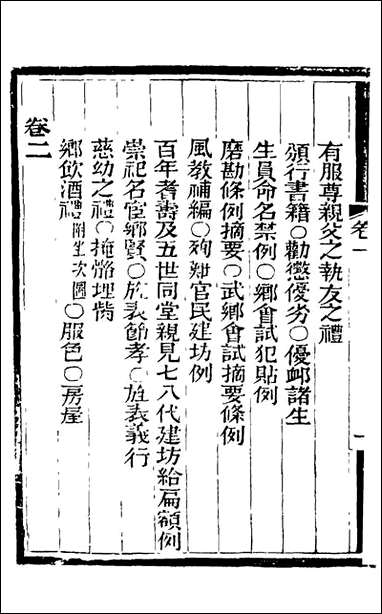 有服尊親父之執友之禮
頒行書籍○勸懲優劣○優卹諸生
生員命名禁例○鄉會試犯貼例
磨勘條例摘要○武鄉會試摘要條例
風教補編○殉難官民建坊例
百年耆壽及五世同堂親見七八代建坊給扁額例
崇祀名宦鄉賢○旌表節孝○旌表義行
慈幼之禮○掩骼埋胔
鄉飲酒禮附坐次圖○服色○房屋
卷二
卷一
一